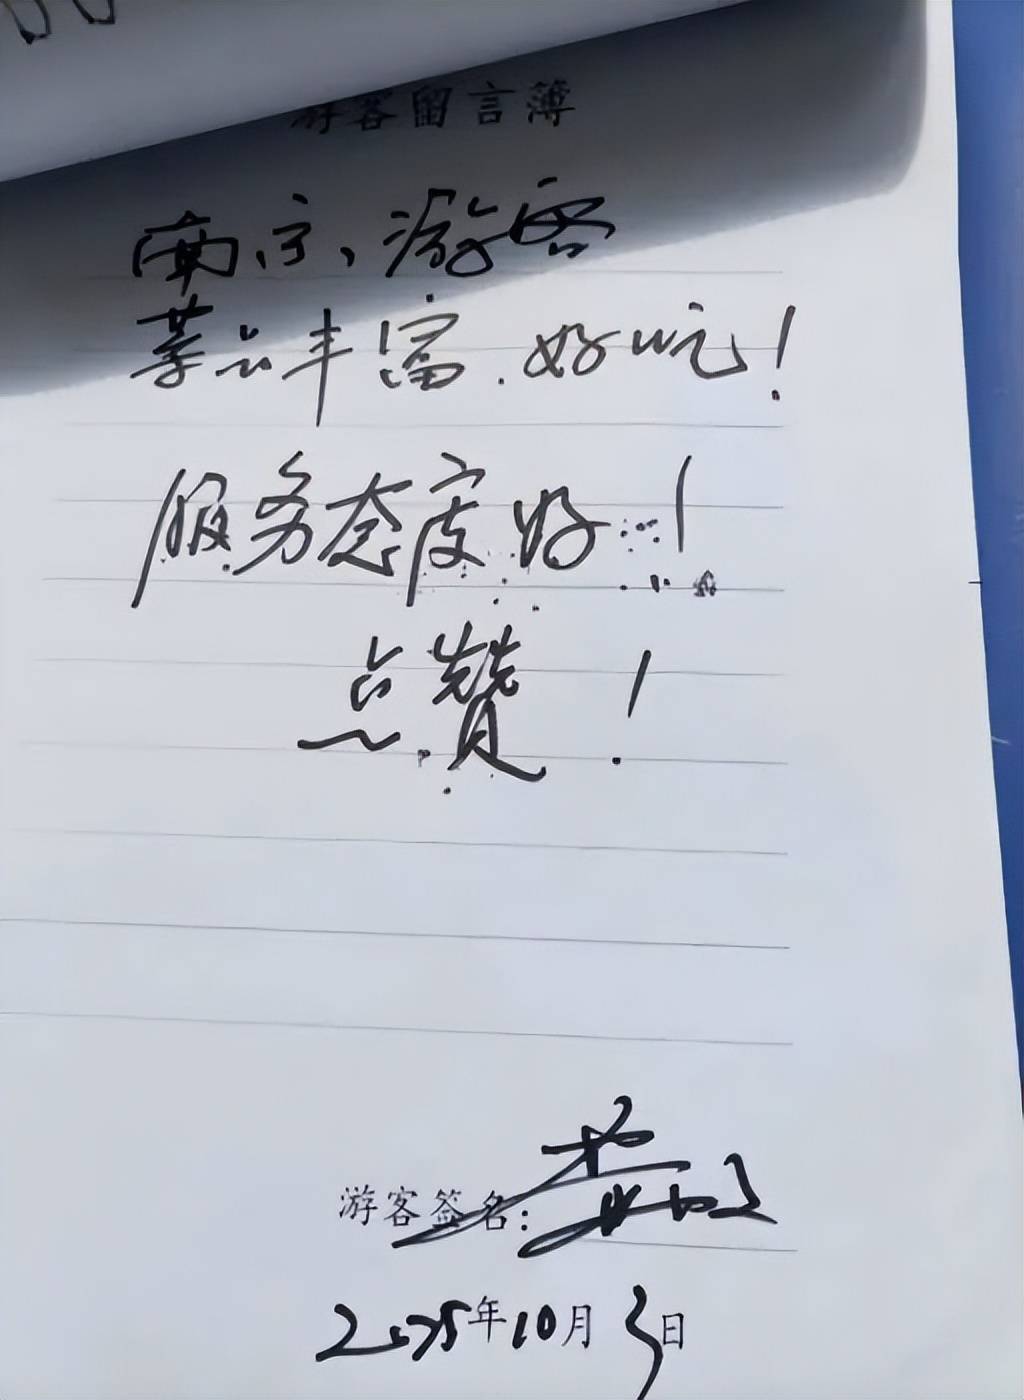 游客留言簿
南京、游客
菜品丰富.好吃!
服务态度好!
点赞!
游客签名:
2025年10月3日